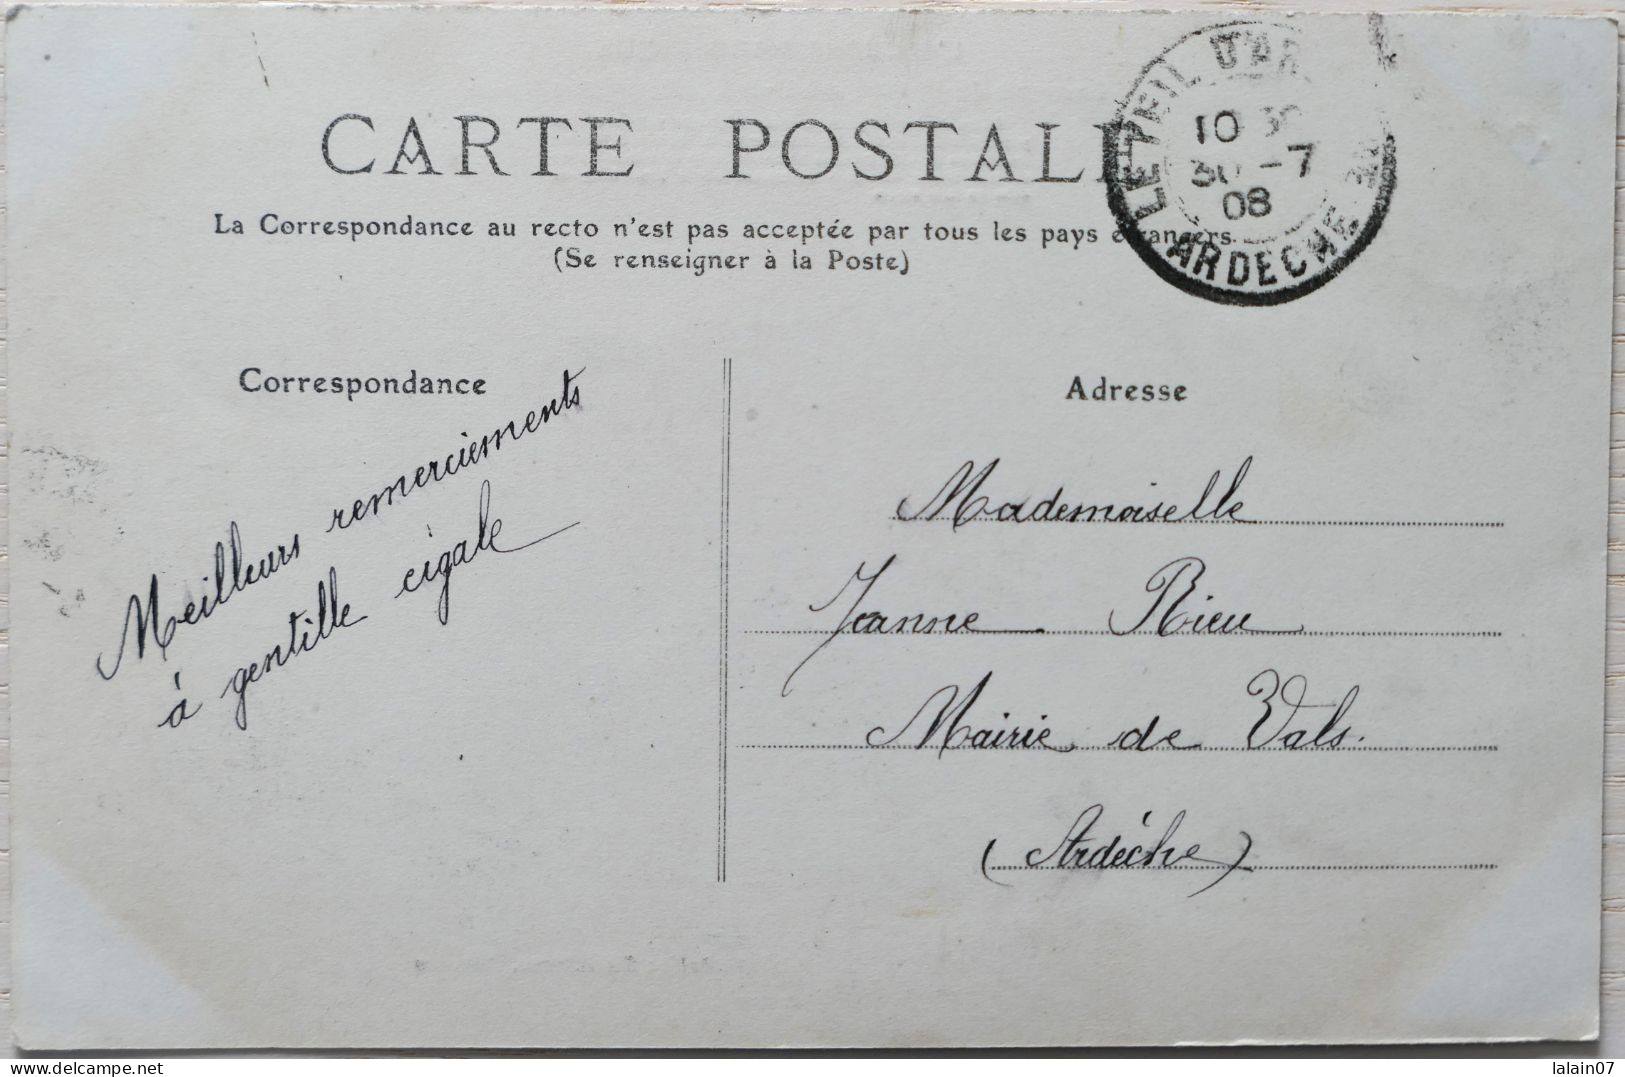 CARTE POSTALE
La Correspondance au recto n'est pas acceptée par tous les pays étrangers.
(Se renseigner à la Poste)
LE TEIL D'AR
10 30
30 -7
08
ARDECHE
Correspondance
Meilleurs remerciements
à gentille cigale
Adresse
Mademoiselle
Jeanne Rieu
Mairie de Vals.
(Ardèche)
Delcampe.net
lalain07